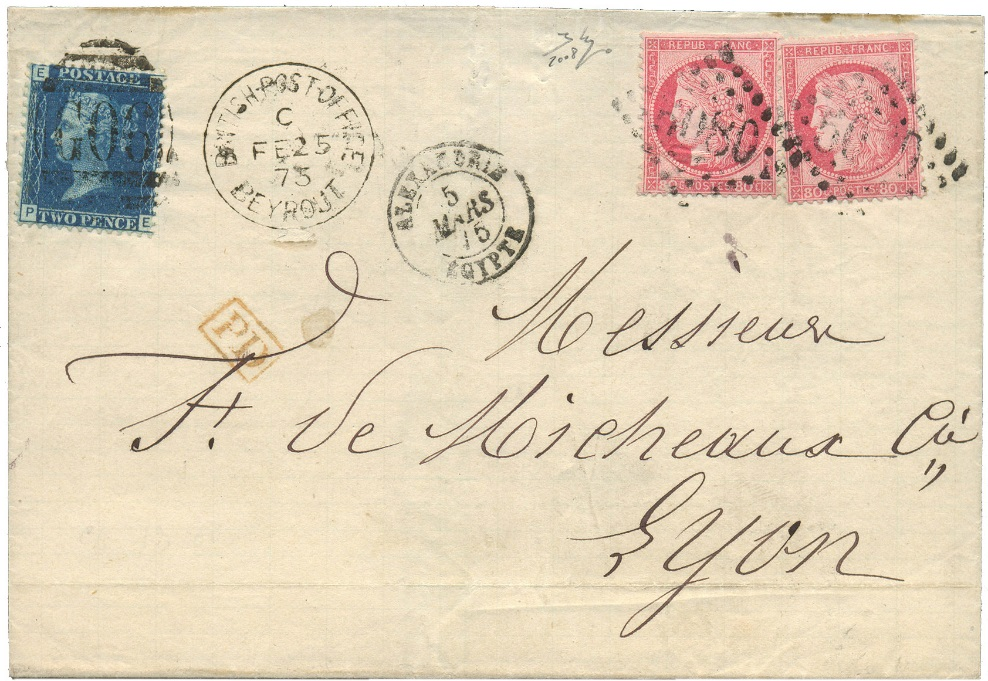 E
POSTAGE
G06
P
TWO PENCE
E
BRITISH-POST-OFFICE
C
FE 25
75
BEYROUT
ALEXANDRIE
5
MARS
75
EGYPTE
2008
REPUB·FRANC
80 POSTES 80
REPUB·FRANC
80 POSTES 80
5080
PD
Messieurs
F. de Micheaux Cie
Lyon